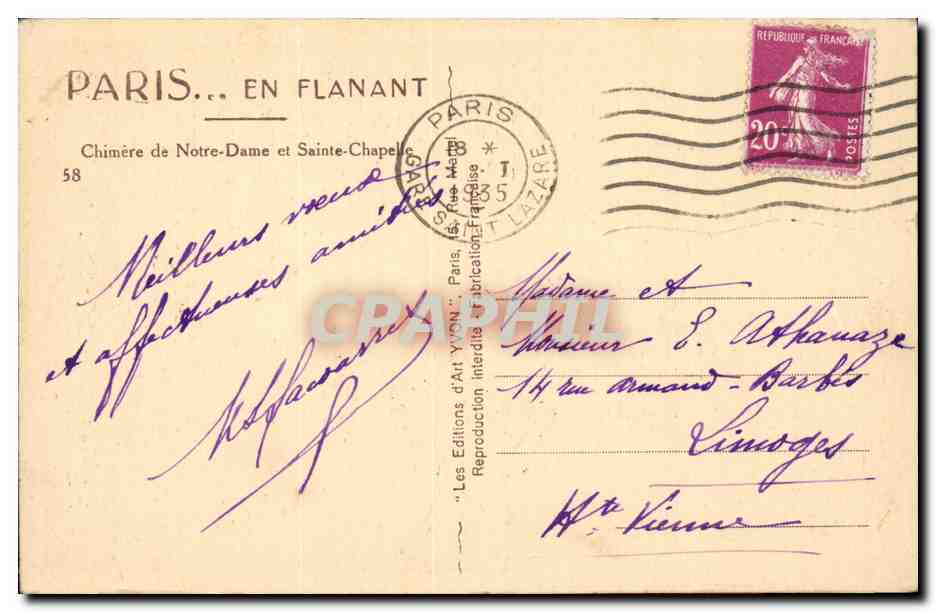 PARIS... EN FLANANT
Chimère de Notre-Dame et Sainte-Chapelle
58
Meilleurs vœux
et affectueuses amitiés
"Les Editions d'Art YVON", Paris, 15, Rue Martel
Reproduction interdite - Fabrication Française
PARIS
18 *
I
1935
GARE SAINT LAZARE
REPUBLIQUE FRANÇAISE
20
POSTES
Madame et
Monsieur E. Athanaze
14 rue Armand-Barbès
Limoges
Hte Vienne
CPAPHIL